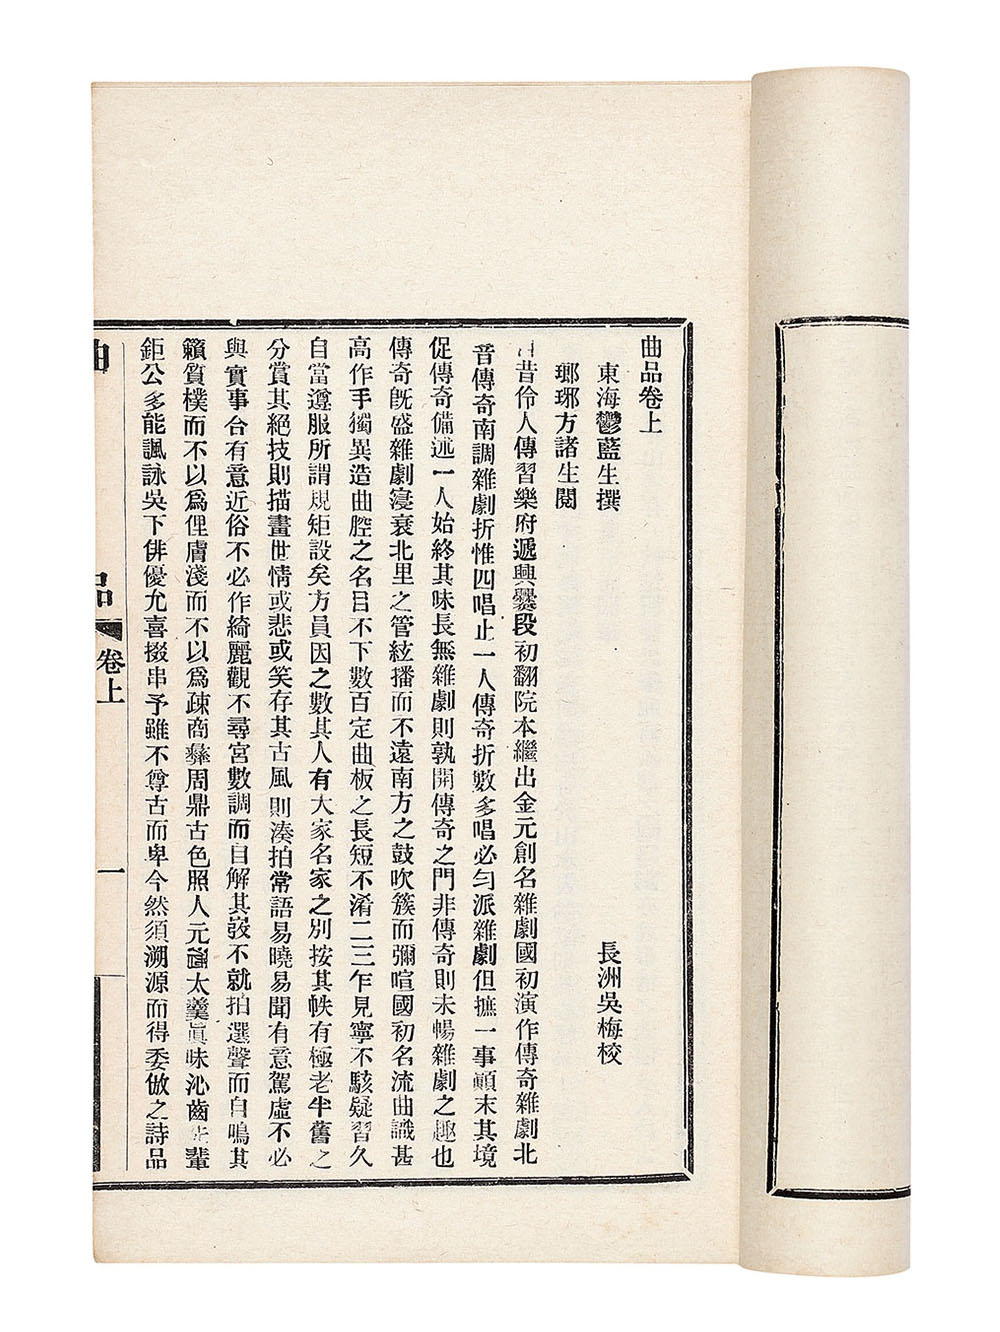 曲品卷上
東海鬱藍生撰　長洲吳梅校
瑯琊方諸生閱
昔伶人傳習樂府遞興爨段初翻院本繼出金元創名雜劇國初演作傳奇雜劇北
音傳奇南調雜劇折惟四唱止一人傳奇折數多唱必勻派雜劇但摭一事顚末其境
促傳奇備述一人始終其味長無雜劇則孰開傳奇之門非傳奇則未暢雜劇之趣也
傳奇旣盛雜劇寖衰北里之管絃播而不遠南方之鼓吹簇而彌喧國初名流曲識甚
高作手獨異造曲腔之名目不下數百定曲板之長短不淆二三乍見寧不駭疑習久
自當遵服所謂規矩設矣方員因之數其人有大家名家之別按其帙有極老半舊之
分賞其絕技則描畫世情或悲或笑存其古風則湊拍常語易曉易聞有意駕虛不必
與實事合有意近俗不必作綺麗觀不尋宮數調而自解其弢不就拍選聲而自鳴其
籟質樸而不以爲俚膚淺而不以爲疎商彝周鼎古色照人元酒太羹眞味沁齒先輩
鉅公多能諷詠吳下俳優尤喜掇串予雖不尊古而卑今然須溯源而得委倣之詩品
曲品
卷上
一